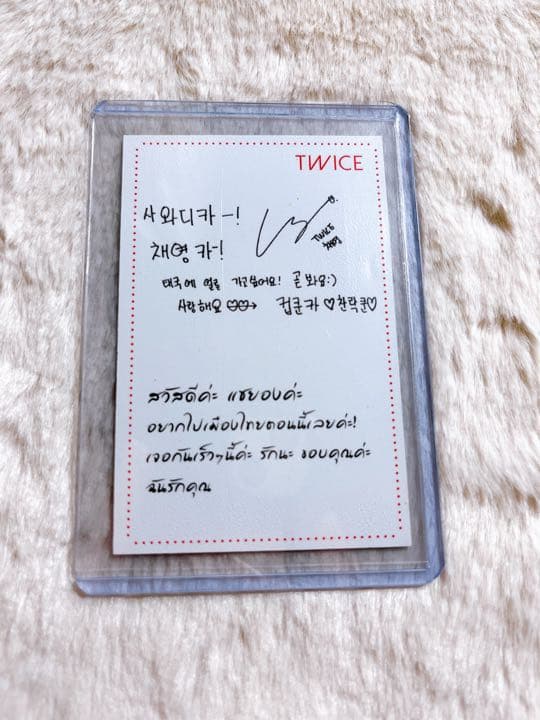 TWICE
사와디카-!
채영카-!
TWICE
태국에 얼른 가고싶어요! 곧 봐요:)
사랑해요 ♡♡→ 컵쿤카 ♡찬락쿤♡
สวัสดีค่ะ แชยองค่ะ
อยากไปเมืองไทยตอนนี้เลยค่ะ!
เจอกันเร็วๆนี้ค่ะ รักนะ ขอบคุณค่ะ
ฉันรักคุณ